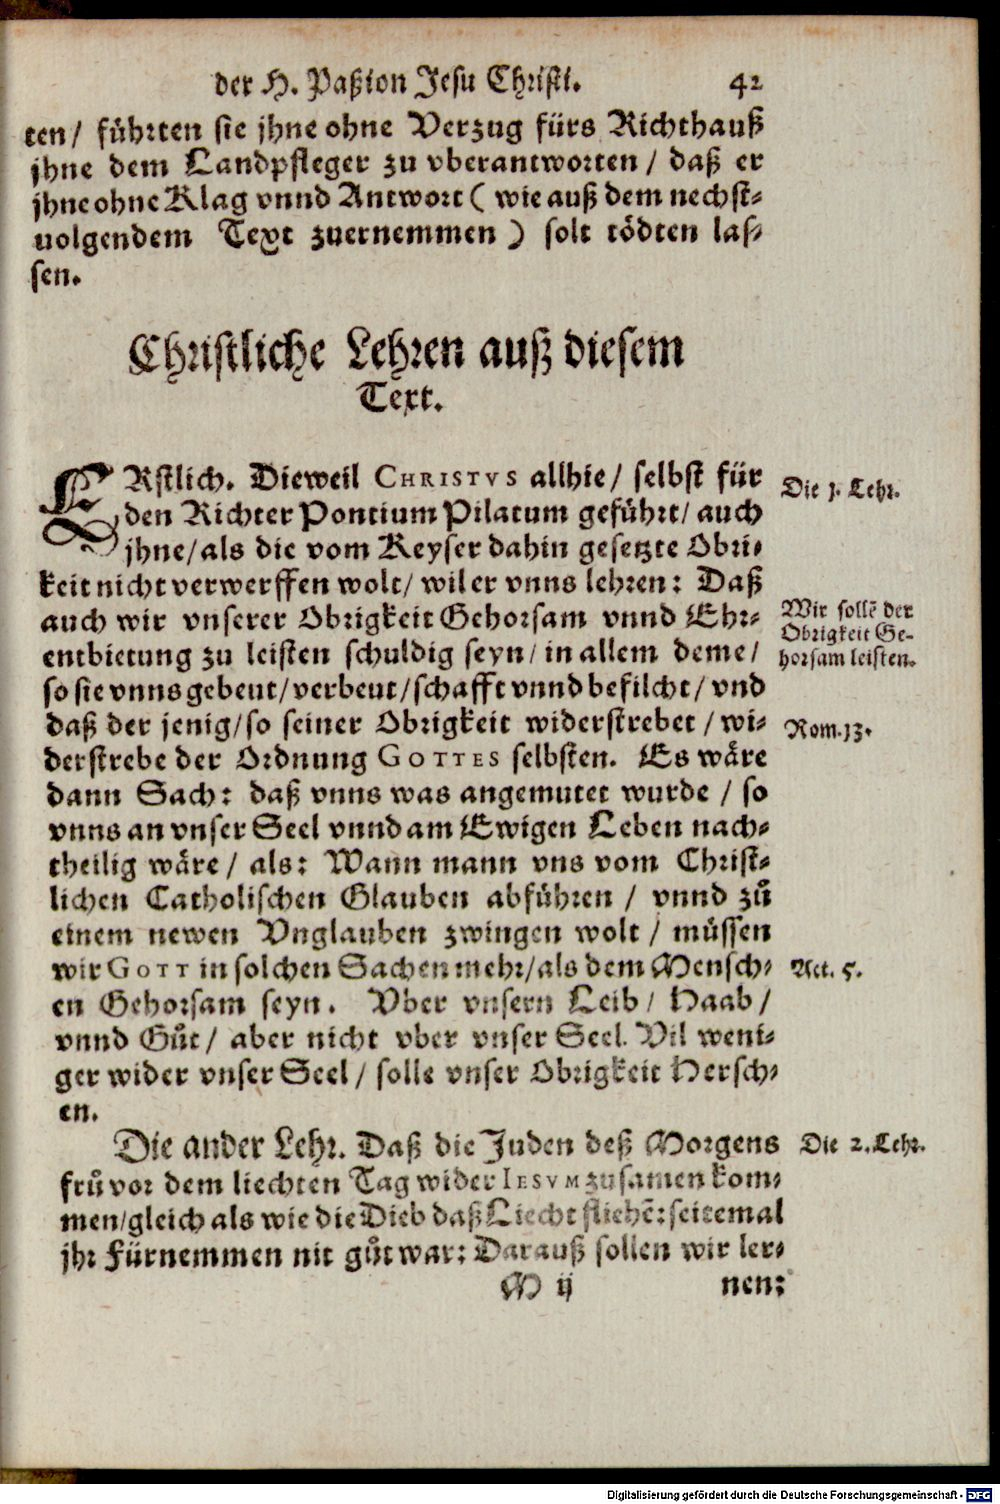 der H. Paßion Jesu Christi. 42
ten/ führten sie jhne ohne Verzug fürs Richthauß
jhne dem Landpfleger zu vberantworten / daß er
jhne ohne Klag vnnd Antwort ( wie auß dem nechst-
uolgendem Text zuernemmen ) solt tödten las-
sen.
Christliche Lehren auß diesem
Text.
ERstlich. Dieweil CHRISTVS allhie / selbst für
den Richter Pontium Pilatum geführt / auch
jhne / als die vom Keyser dahin gesetzte Obri-
keit nicht verwerffen wolt / wil er vnns lehren: Daß
auch wir vnserer Obrigkeit Gehorsam vnnd Ehr-
entbietung zu leisten schuldig seyn / in allem deme /
so sie vnns gebeut / verbeut / schafft vnnd befilcht / vnd
daß der jenig / so seiner Obrigkeit widerstrebet / wi-
derstrebe der Ordnung GOTTES selbsten. Es wäre
dann Sach: daß vnns was angemutet wurde / so
vnns an vnser Seel vnnd am Ewigen Leben nach-
theilig wäre / als: Wann mann vns vom Christ-
lichen Catholischen Glauben abführen / vnnd zů
einem newen Vnglauben zwingen wolt / müssen
wir GOTT in solchen Sachen mehr / als dem Mensch-
en Gehorsam seyn. Vber vnsern Leib / Haab /
vnnd Gůt / aber nicht vber vnser Seel. Vil weni-
ger wider vnser Seel / solle vnser Obrigkeit Hersch-
en.
Die ander Lehr. Daß die Juden deß Morgens
frů vor dem liechten Tag wider IESVM zusamen kom-
men / gleich als wie die Dieb daß Liecht fliehẽ: seitemal
jhr Fürnemmen nit gůt war: Darauß sollen wir ler-
M ij nen:
Die 1. Lehr.
Wir sollẽ der
Obrigkeit Ge-
horsam leisten.
Rom. 13.
Act. 5.
Die 2. Lehr.
Digitalisierung gefördert durch die Deutsche Forschungsgemeinschaft - DFG